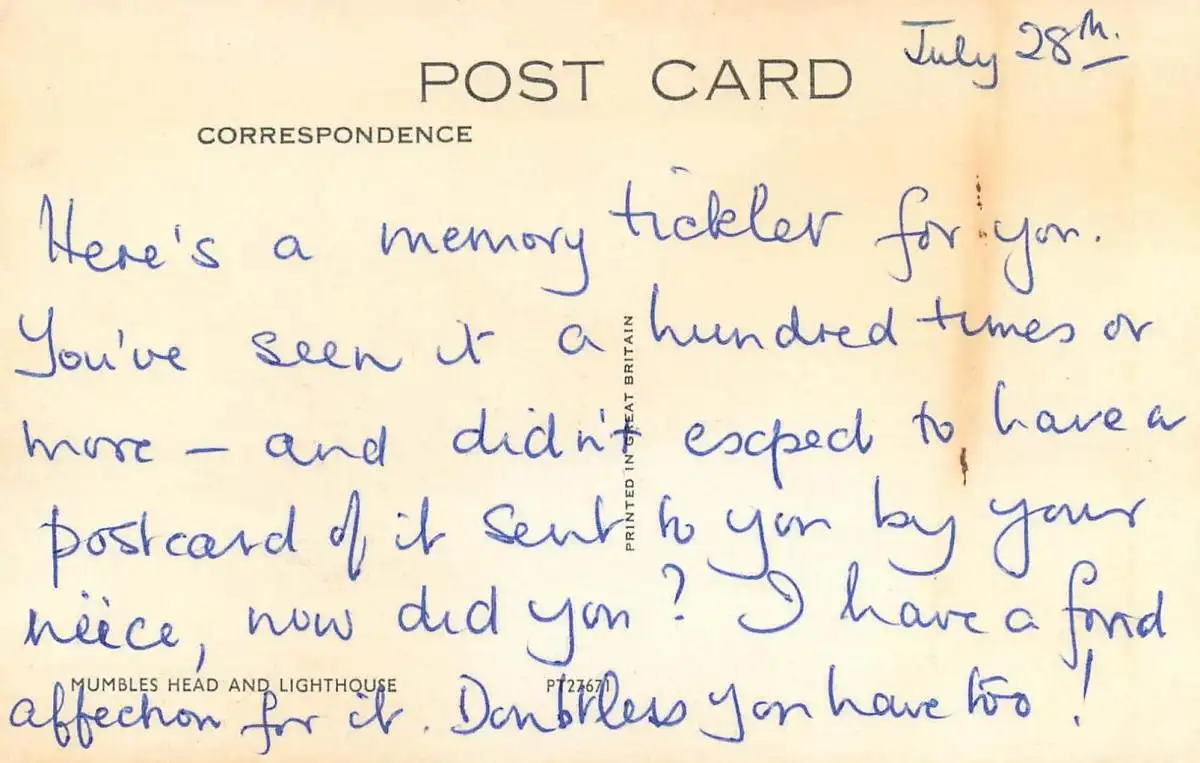 July 28th.
POST CARD
CORRESPONDENCE
Here's a memory tickler for you.
You've seen it a hundred times or
more – and didn't expect to have a
postcard of it sent to you by your
neice, now did you? I have a fond
affection for it. Doubtless you have too!
PRINTED IN GREAT BRITAIN
MUMBLES HEAD AND LIGHTHOUSE
PT27671